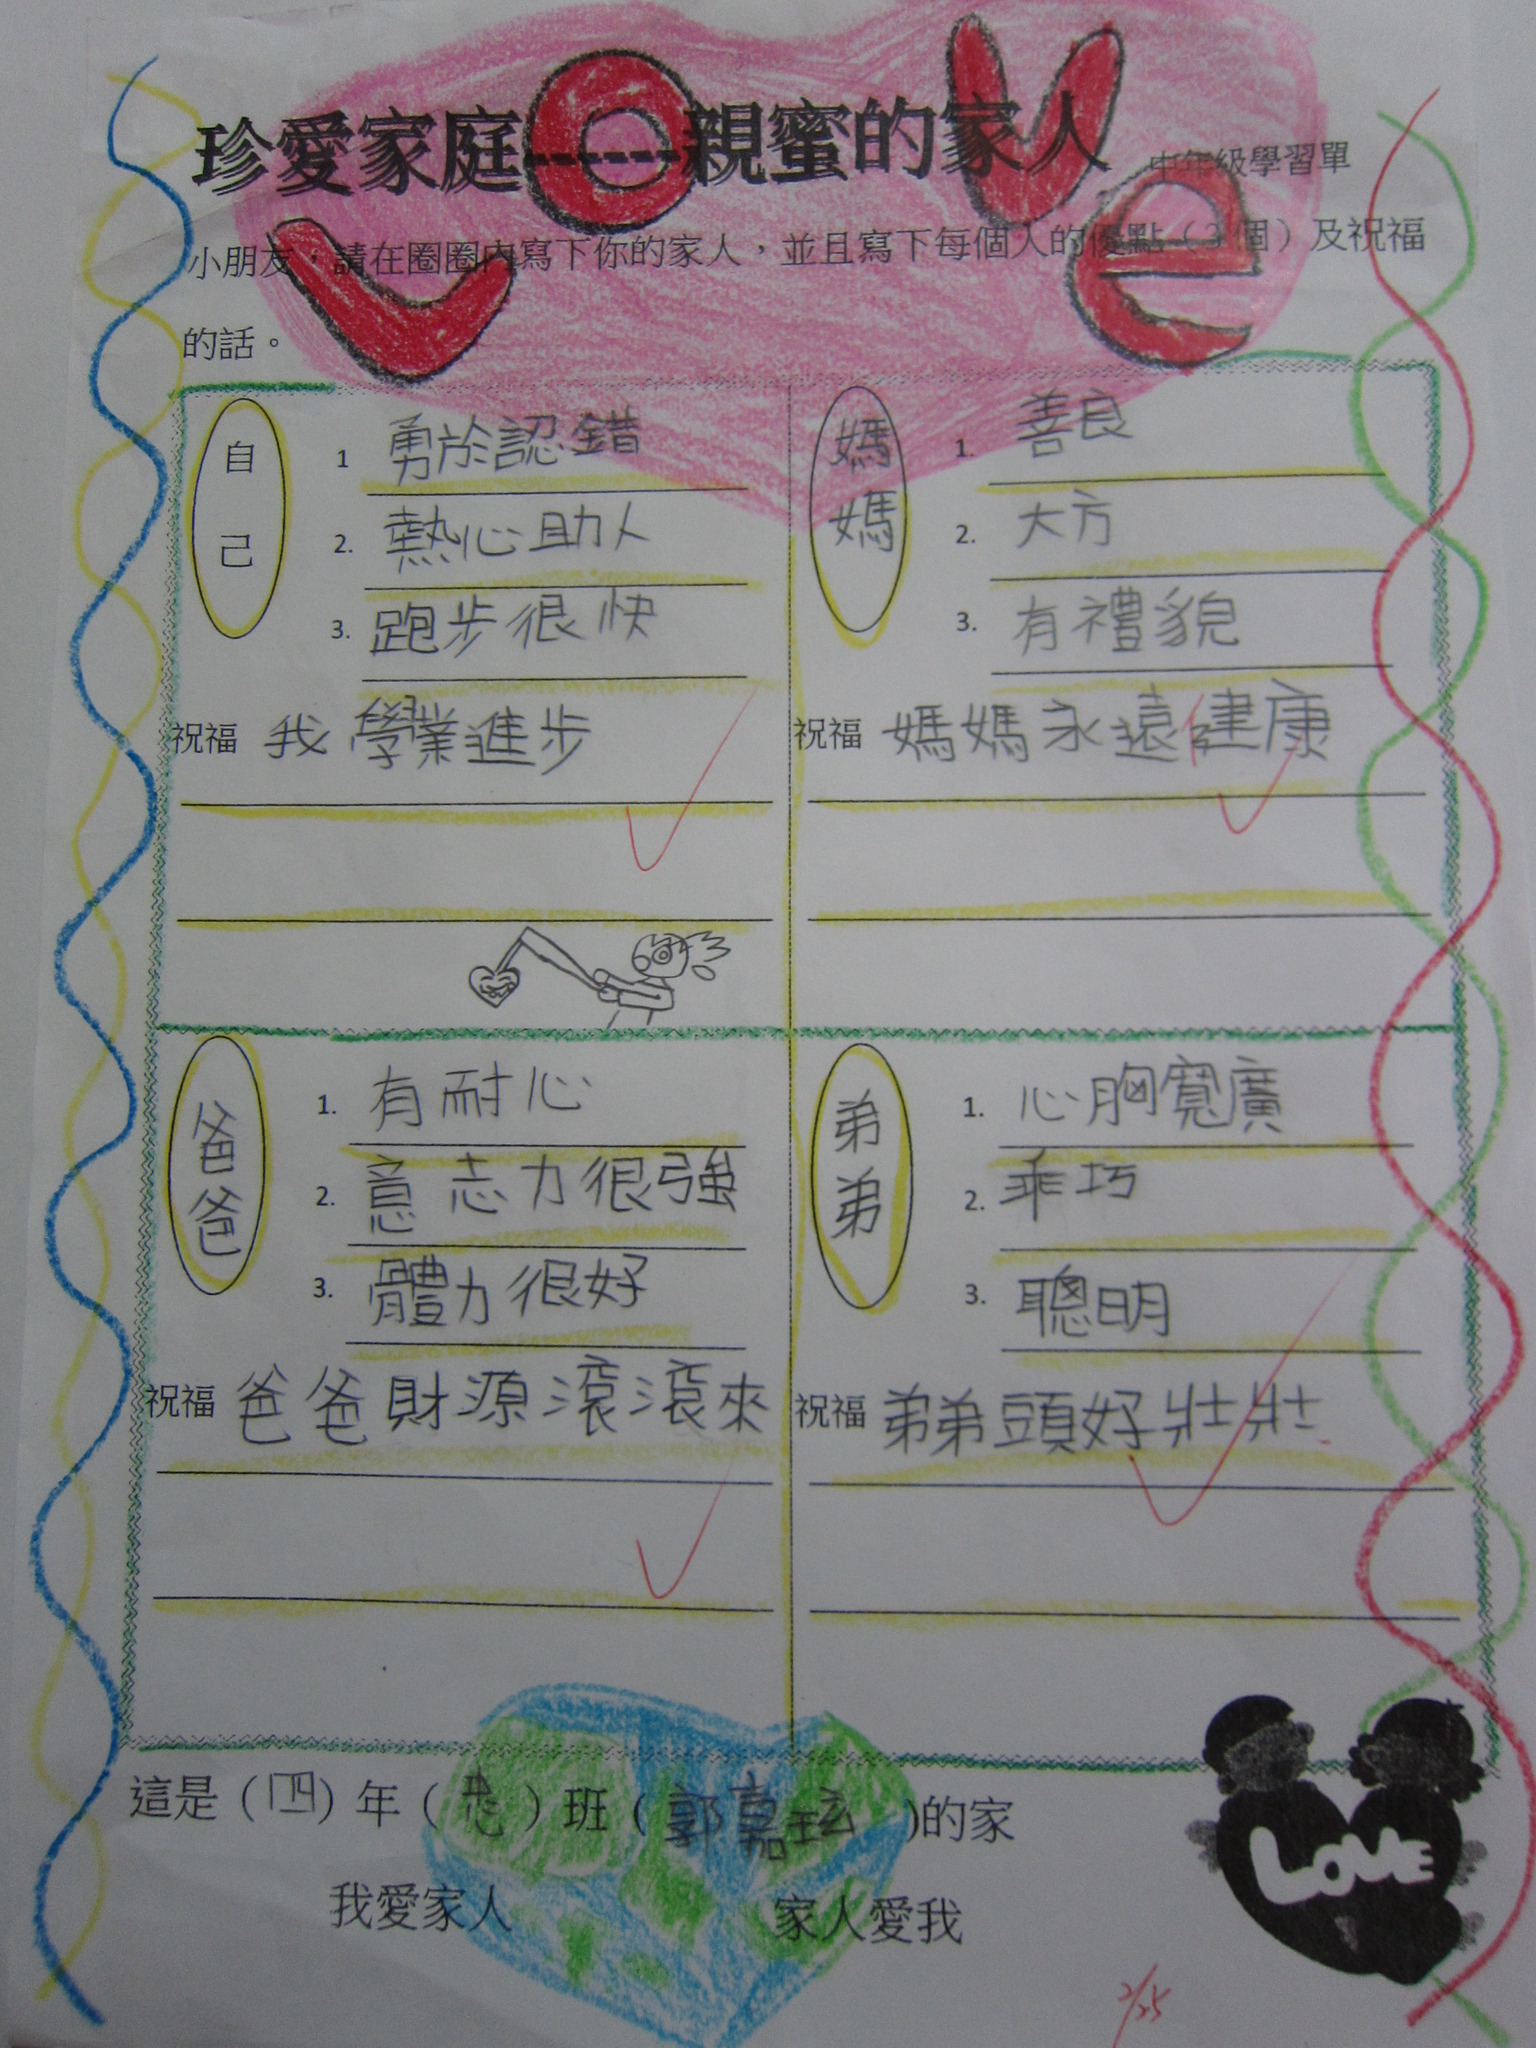 LOVE
珍愛家庭-----親蜜的家人 中年級學習單
小朋友,請在圈圈內寫下你的家人,並且寫下每個人的優點(3個)及祝福
的話。
自己
1 勇於認錯
2. 熱心助人
3. 跑步很快
祝福 我學業進步
媽媽
1. 善良
2. 大方
3. 有禮貌
祝福 媽媽永遠健康
爸爸
1. 有耐心
2. 意志力很強
3. 體力很好
祝福 爸爸財源滾滾來
弟弟
1. 心胸寬廣
2. 乖巧
3. 聰明
祝福 弟弟頭好壯壯
這是(四)年(忠)班(郭嘉玹)的家
我愛家人 家人愛我
LOVE
2/25